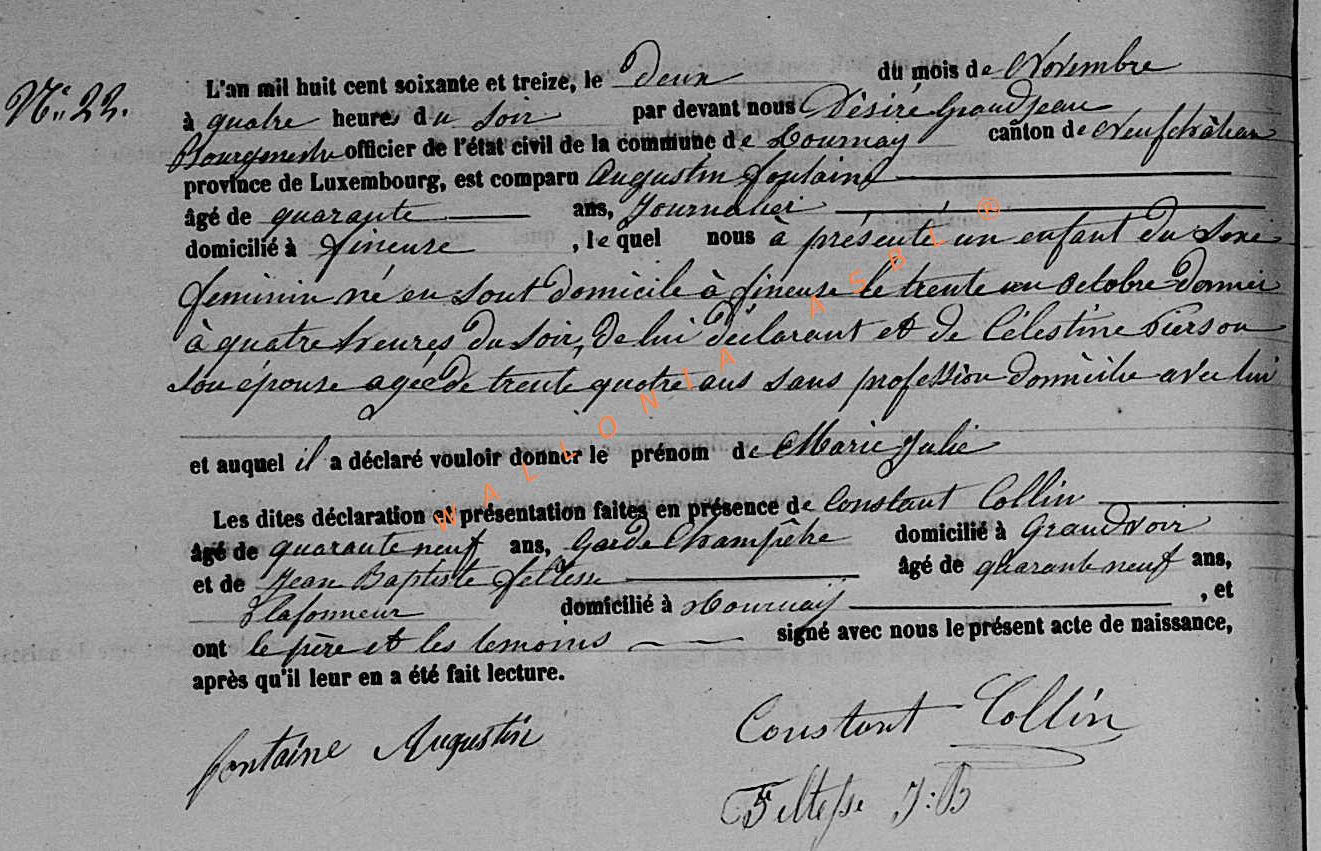 N° 22.
L'an mil huit cent soixante et treize, le Deux du mois de Novembre
à quatre heures du Soir par devant nous Désiré Grandjean
Bourgmestre officier de l'état civil de la commune de Tournay canton de Neufchâteau
province de Luxembourg, est comparu Augustin fontaine
âgé de quarante ans, Journalier
domicilié à fineuse , lequel nous à présenté un enfant du Sexe
feminin né en sont domicile à fineuse le trente un octobre dernier
à quatre heures du soir, de lui déclarant et de Célestine Pierson
son épouse agée de trente quatre ans sans profession domicilie avec lui
et auquel il a déclaré vouloir donner le prénom de Marie Julie
Les dites déclaration et présentation faites en présence de Constant Collin
âgé de quarante neuf ans, Garde Champêtre domicilié à Grandvoir
et de Jean Baptiste feltesse âgé de quarante neuf ans,
Plafonneur domicilié à Tournay , et
ont le père et les temoins signé avec nous le présent acte de naissance,
après qu'il leur en a été fait lecture.
fontaine Augustin
Constant Collin
Feltesse J:B
WALLONIA ASBL ®